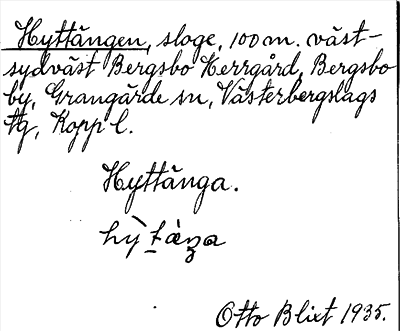 Hyttängen, sloge, 100 m. väst-
sydväst Bergsbo Herrgård, Bergsbo
by, Grangärde sn, Västerbergslags
tg, Kopp l.
Hyttänga.
Otto Blixt 1935.